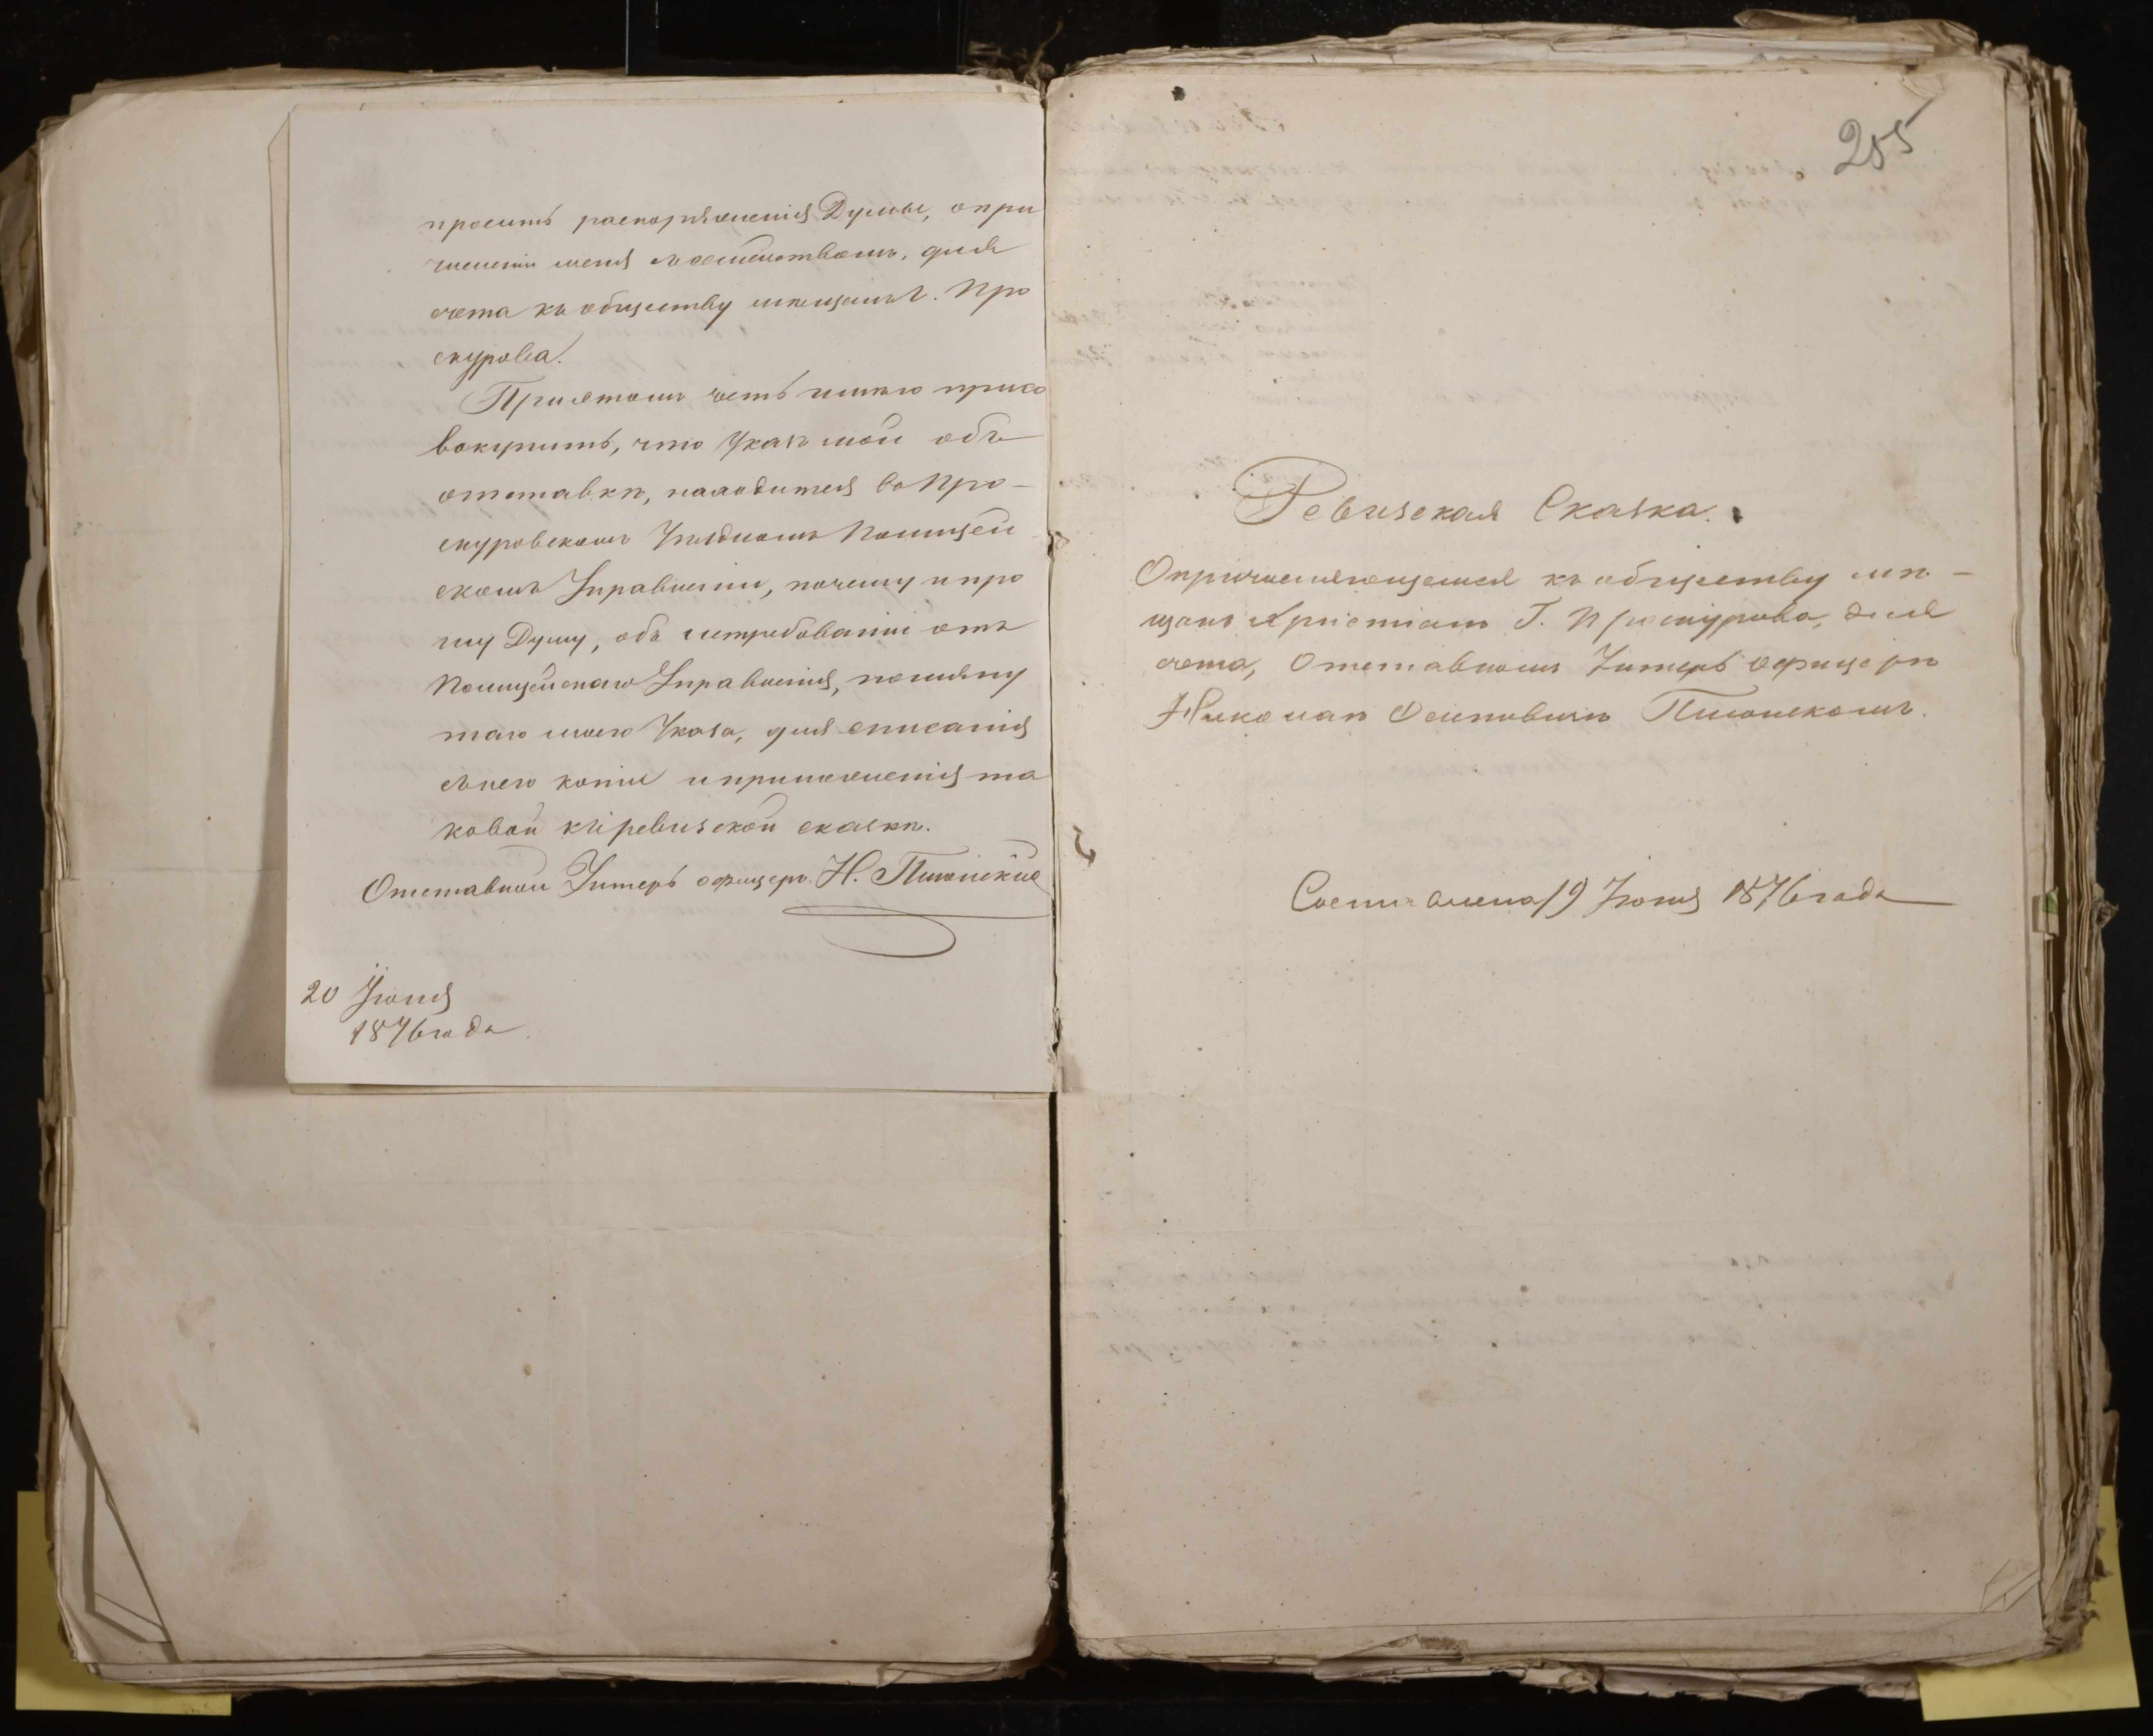 просить распоряженія Думы, опри
численіи меня съ семействомъ, для
счета къ обществу мещанъ г. Про
скурова.
Приэтомъ честь имѣю присо
вокупить, что Указъ мой объ
отставкѣ, находится въ Про-
скуровскомъ Уѣздномъ Полицей
скомъ Управленіи, почему и про
шу Думу, объ истребованіи отъ
Полицейскаго Управленія, помяну
таго моего Указа, для списанія
съ него копіи и приложенія та
ковой къ ревизской сказкѣ.
Отставной Унтеръ офицеръ Н.
20 Іюня
1876 года
255
Ревизская Сказка.
Опричисляющемся къ обществу мѣ-
щанъ Христіанъ Г. Проскурова, для
счета, Отставномъ Унтеръ офицерѣ
Николаѣ Осиповичѣ
Составлена 19 Іюня 1876 года